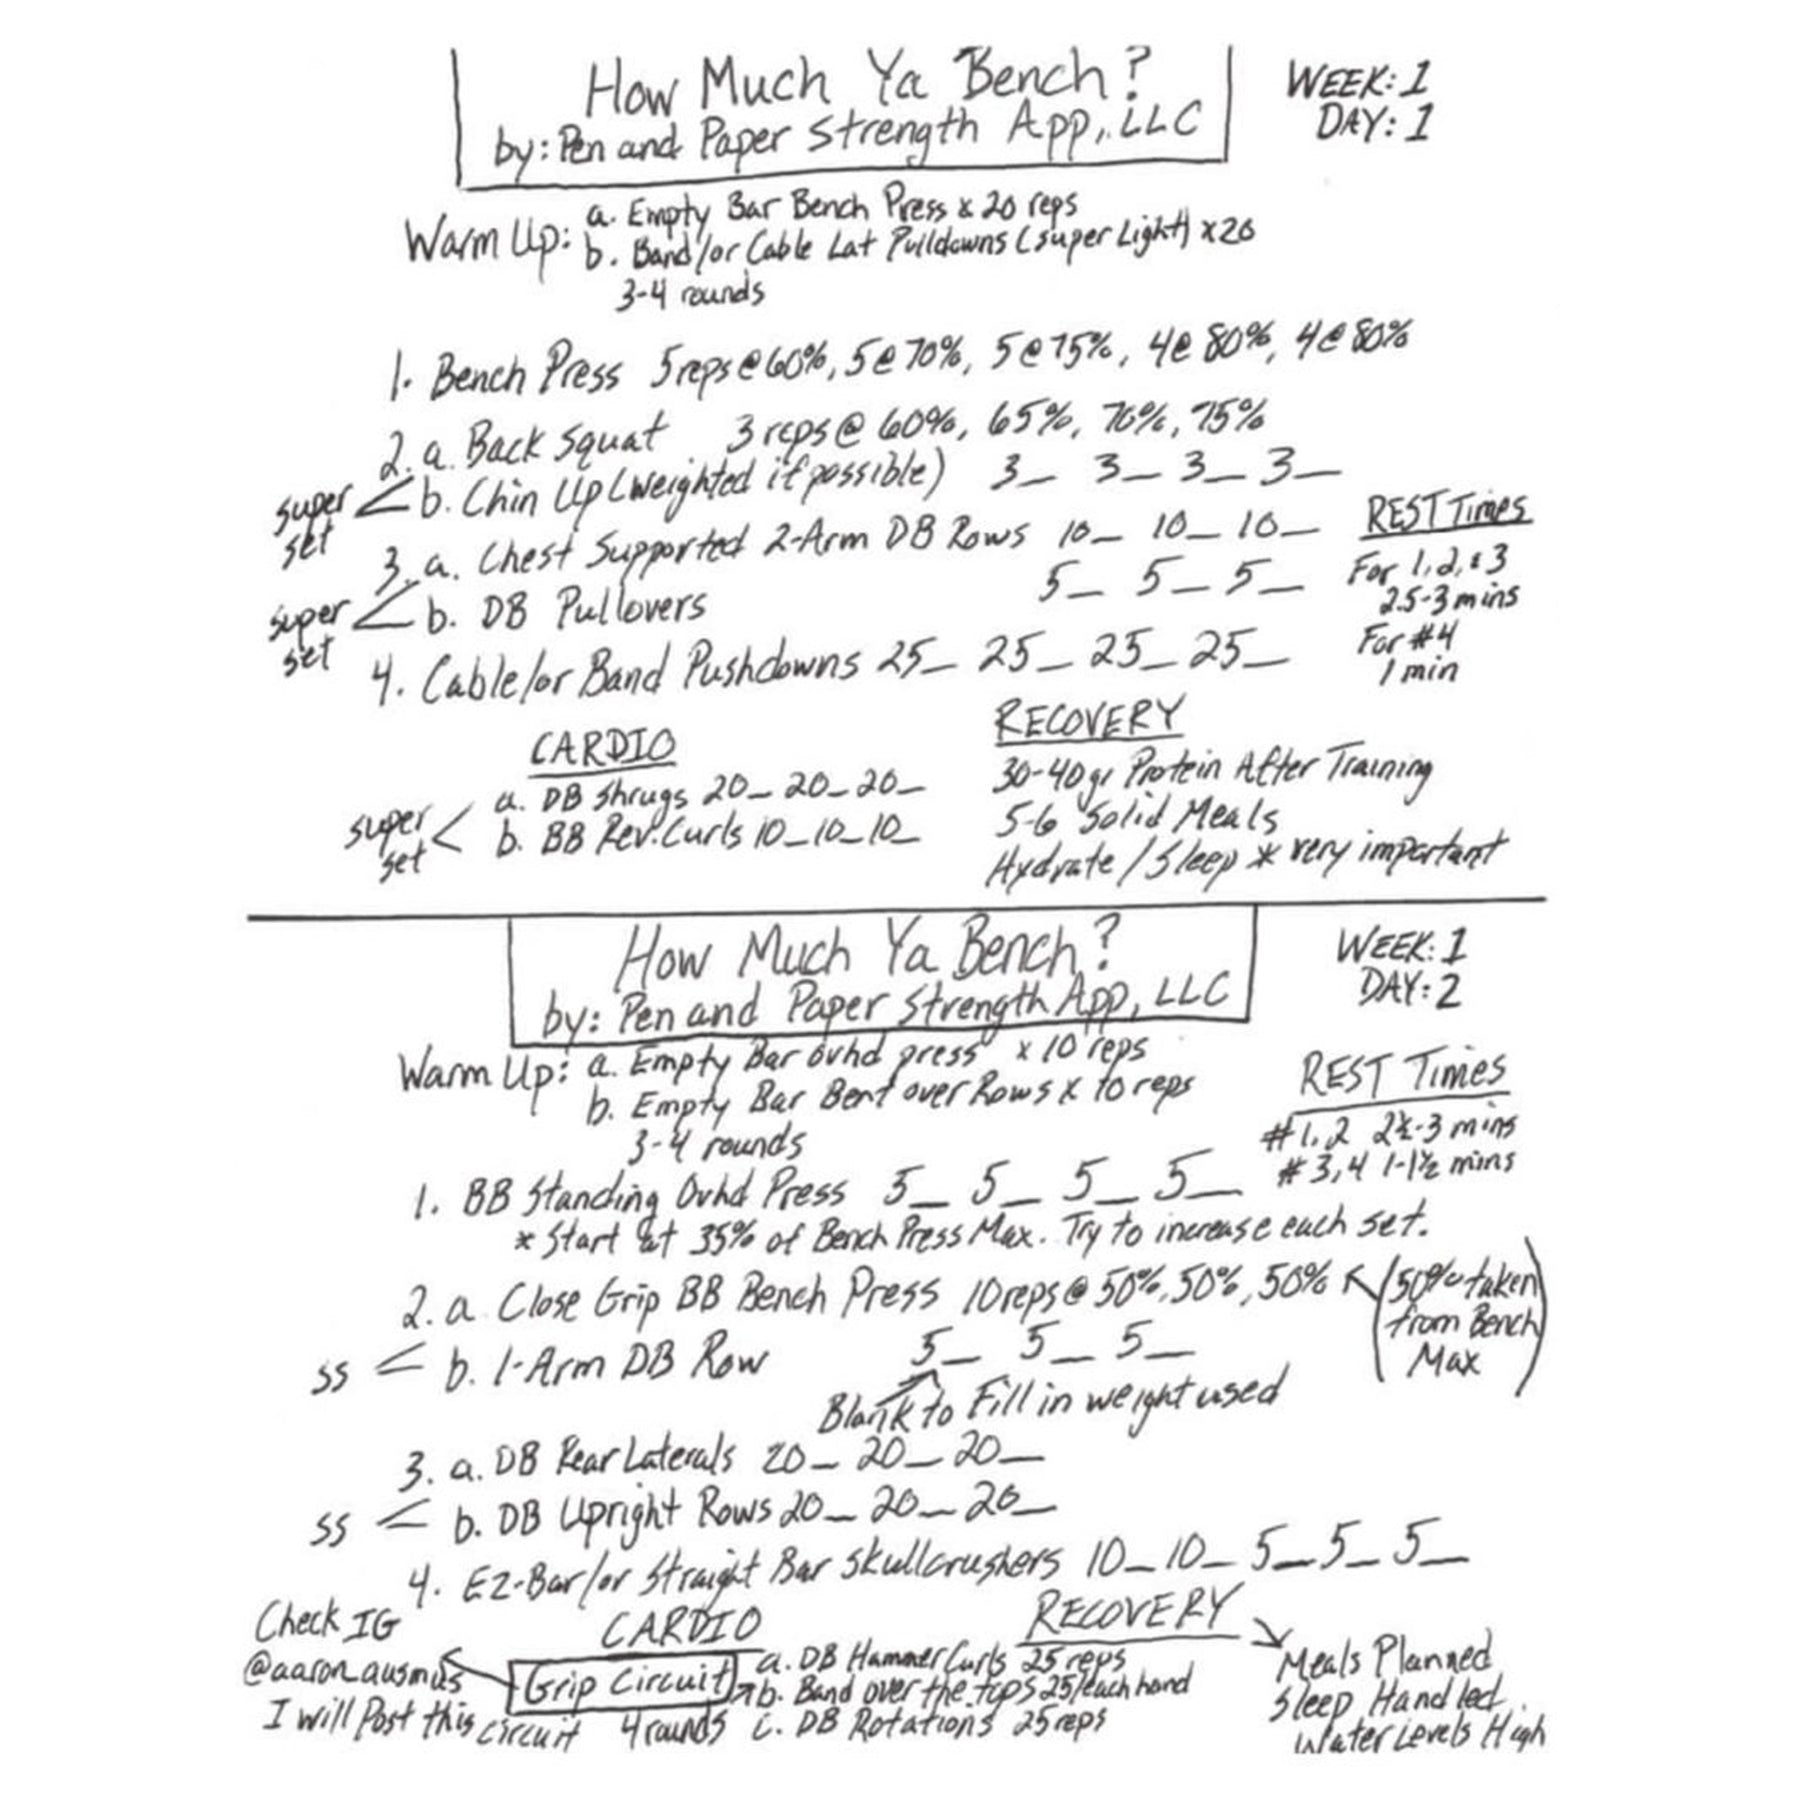 How Much Ya Bench?
by: Pen and Paper Strength App, LLC
WEEK: 1
DAY: 1
Warm Up: a. Empty Bar Bench Press x 20 reps
b. Band/or Cable Lat Pulldowns (super Light) x20
3-4 rounds
1. Bench Press 5 reps @ 60%, 5 @ 70%, 5 @ 75%, 4 @ 80%, 4 @ 80%
2. a. Back Squat 3 reps @ 60%, 65%, 70%, 75%
super set < b. Chin Up (weighted if possible) 3_ 3_ 3_ 3_
3. a. Chest Supported 2-Arm DB Rows 10_ 10_ 10_
super set < b. DB Pullovers 5_ 5_ 5_
4. Cable/or Band Pushdowns 25_ 25_ 25_ 25_
REST Times
For 1, 2, & 3
2.5-3 mins
For #4
1 min
CARDIO
a. DB Shrugs 20_ 20_ 20_
super set < b. BB Rev. Curls 10_ 10_ 10_
RECOVERY
30-40 gr Protein After Training
5-6 Solid Meals
Hydrate / Sleep * very important
How Much Ya Bench?
by: Pen and Paper Strength App, LLC
WEEK: 1
DAY: 2
Warm Up: a. Empty Bar ovhd press x 10 reps
b. Empty Bar Bent over Rows x 10 reps
3-4 rounds
REST Times
#1, 2 2½-3 mins
#3, 4 1-1½ mins
1. BB Standing Ovhd Press 5_ 5_ 5_ 5_
* Start at 35% of Bench Press Max. Try to increase each set.
2. a. Close Grip BB Bench Press 10 reps @ 50%, 50%, 50%
(50% taken
from Bench
Max)
ss < b. 1-Arm DB Row 5_ 5_ 5_
Blank to Fill in weight used
3. a. DB Rear Laterals 20_ 20_ 20_
ss < b. DB Upright Rows 20_ 20_ 20_
4. EZ-Bar/or Straight Bar Skullcrushers 10_ 10_ 5_ 5_ 5_
Check IG
@aaron_ausmus
I will Post this circuit
CARDIO
Grip Circuit
4 rounds
a. DB Hammer Curls 25 reps
b. Band over the tops 25/each hand
c. DB Rotations 25 reps
RECOVERY
Meals Planned
Sleep Handled
Water Levels High